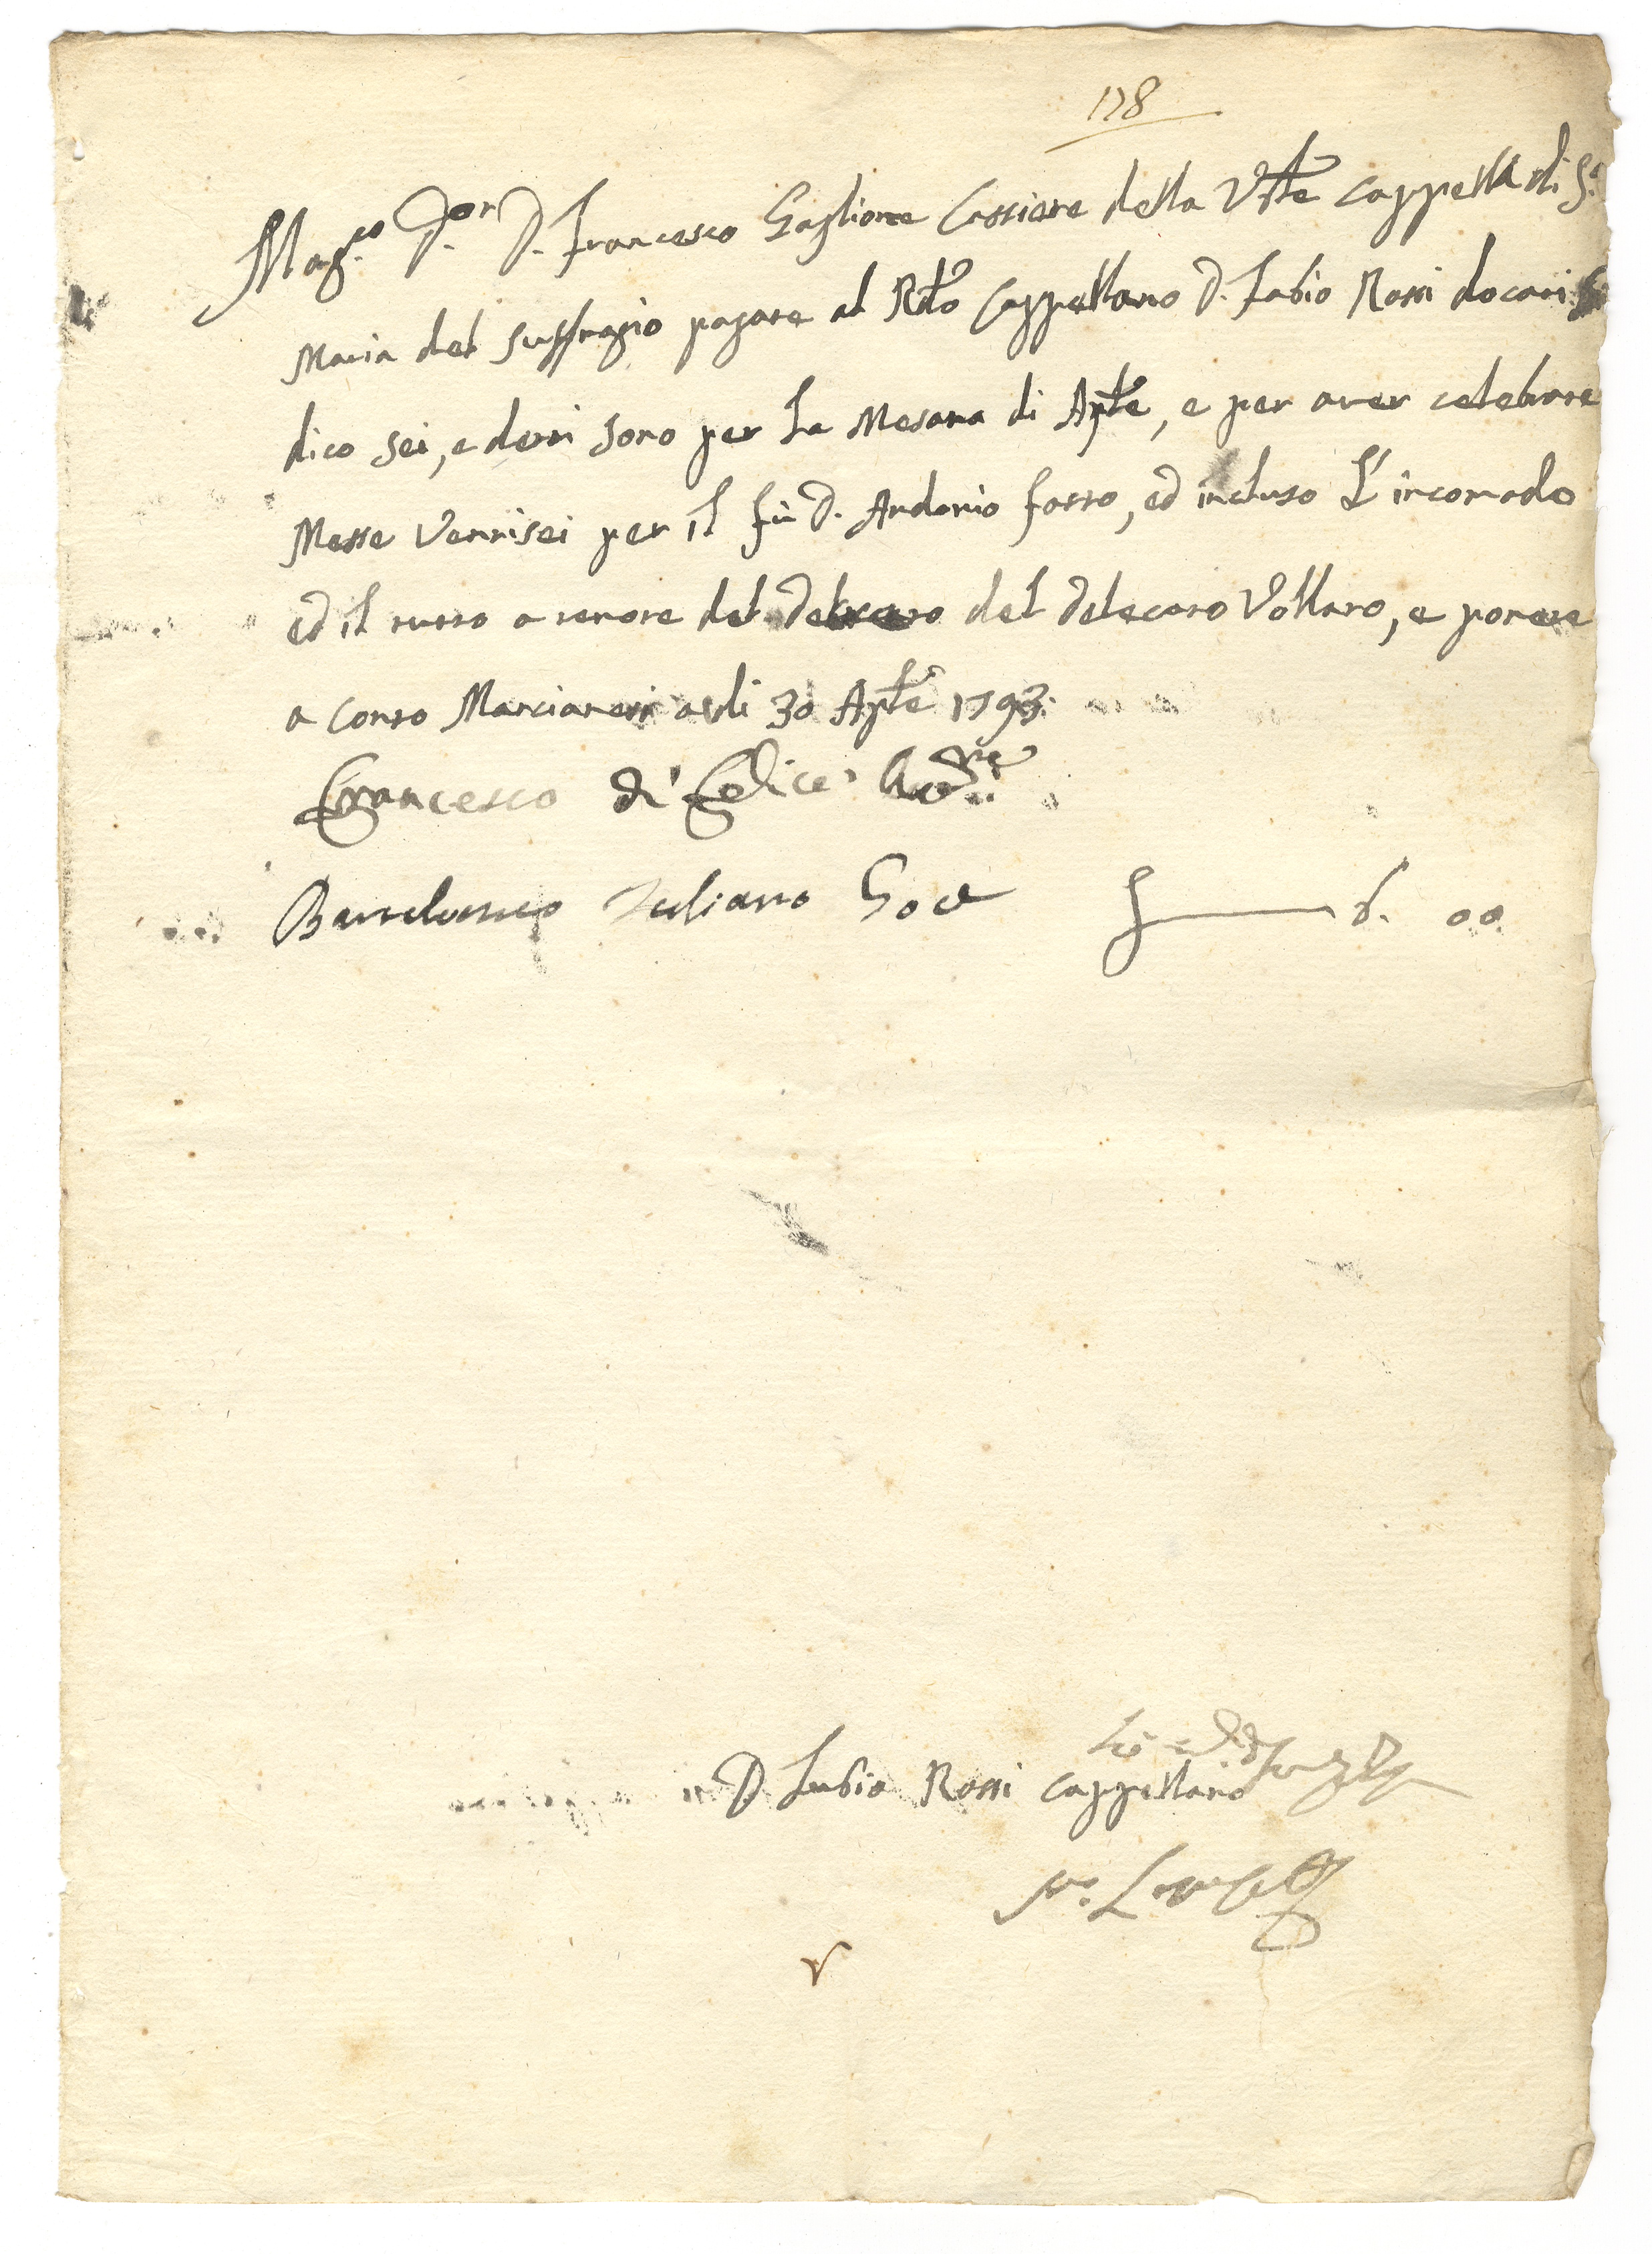 178
Mag.co D.or D. Francesco Gaglione Cassiere della Vñle Cappella di S.a
Maria del Suffragio pagate al R̃do Cappellano D. Fabio Rossi docati
dico sei, e detti sono per la Mesata di Aple, e per aver celebrate
Messe Ventisei per il fù D. Andonio fosso, ed incluso L'incomodo
ed il tutto a tenore del del delecato Vollaro, e ponete
a conto Marcianesi adi 30 Aple 1793
Francesco di Felice
Bartolomeo Iuliano Gov
6. 00
D. Fabio Rossi Cappellano